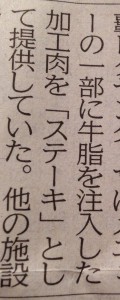 ーの一部に牛脂を注入した
加工肉を「ステーキ」とし
て提供していた。他の施設